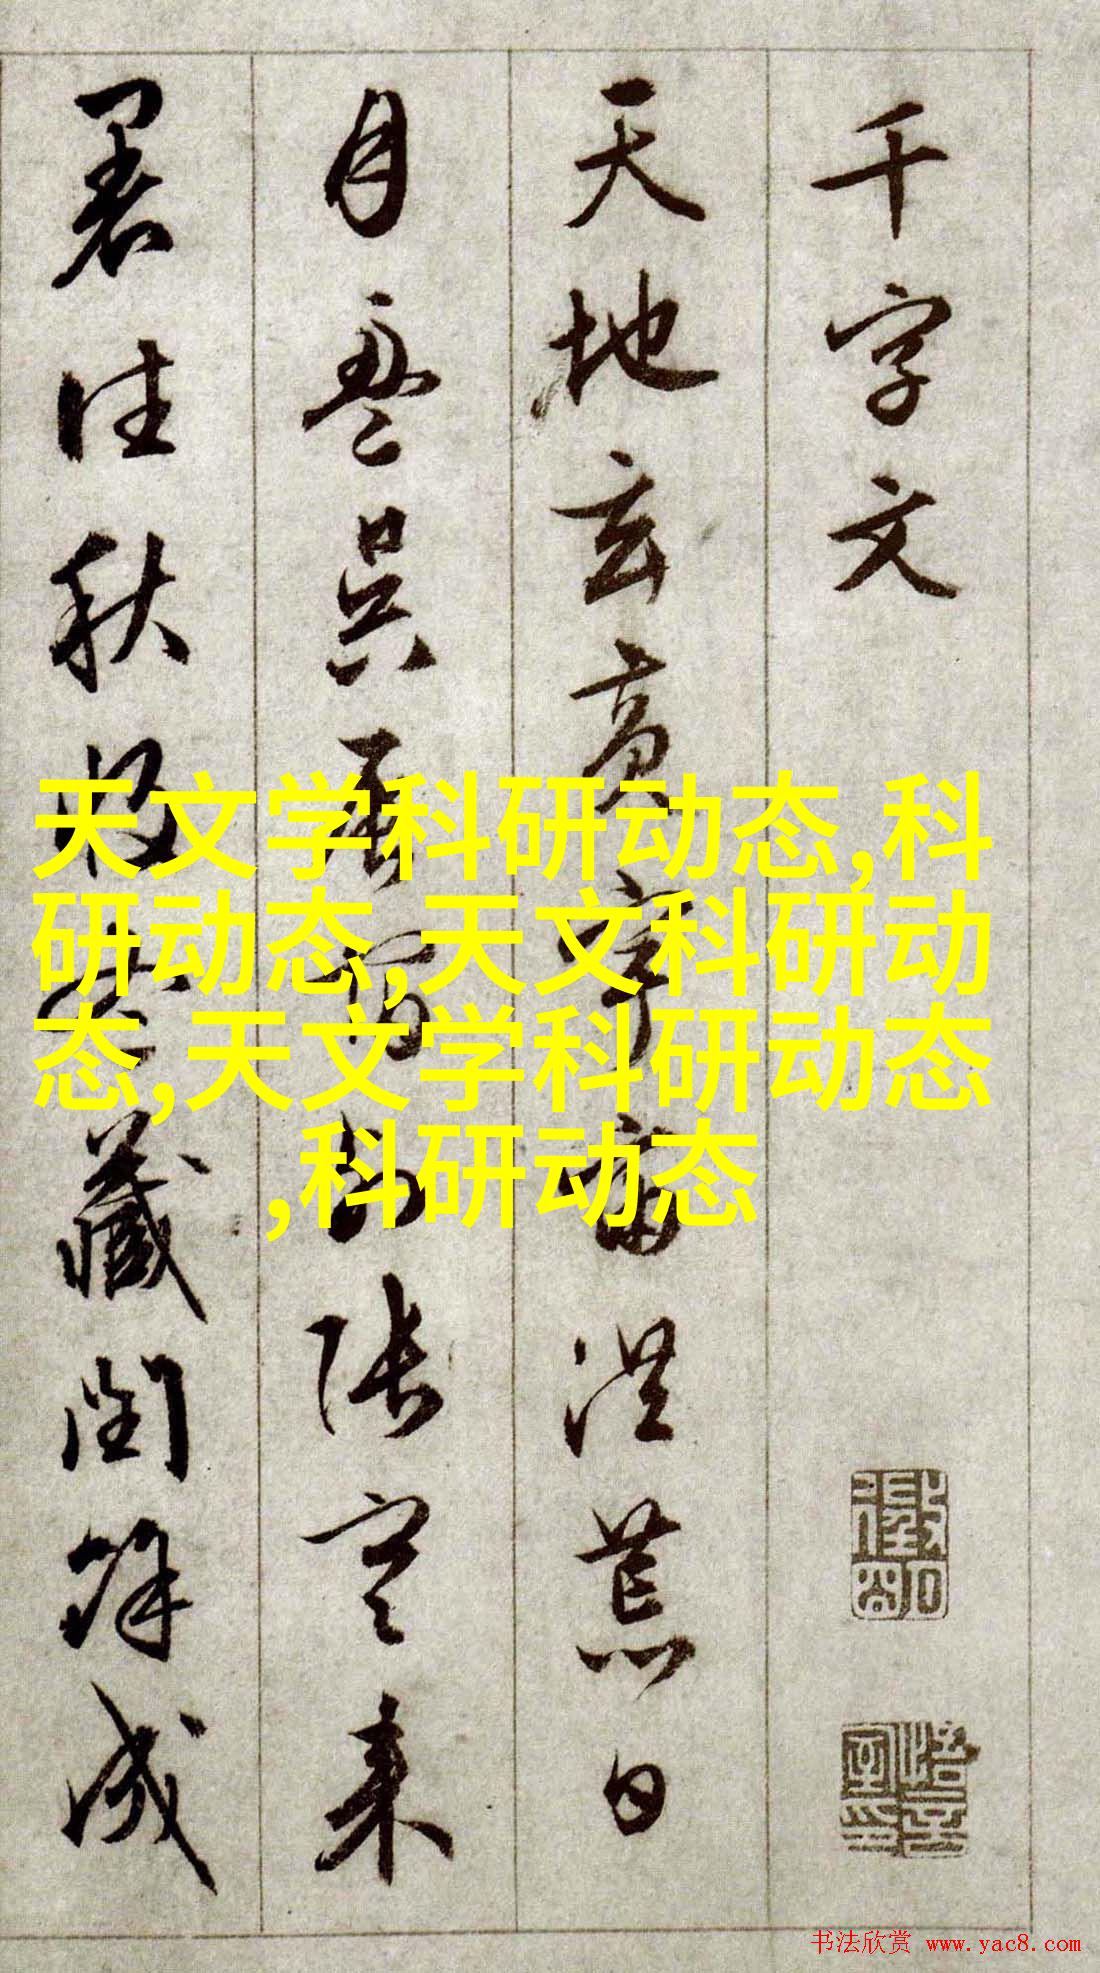 千字文
天地玄黄宇宙洪荒日
月盈昃辰宿列張寒来
暑往秋收冬藏閏餘成
天文学科研动态,科
研动态,天文科研动
态,天文学科研动态
,科研动态
书法欣赏 www.yac8.com